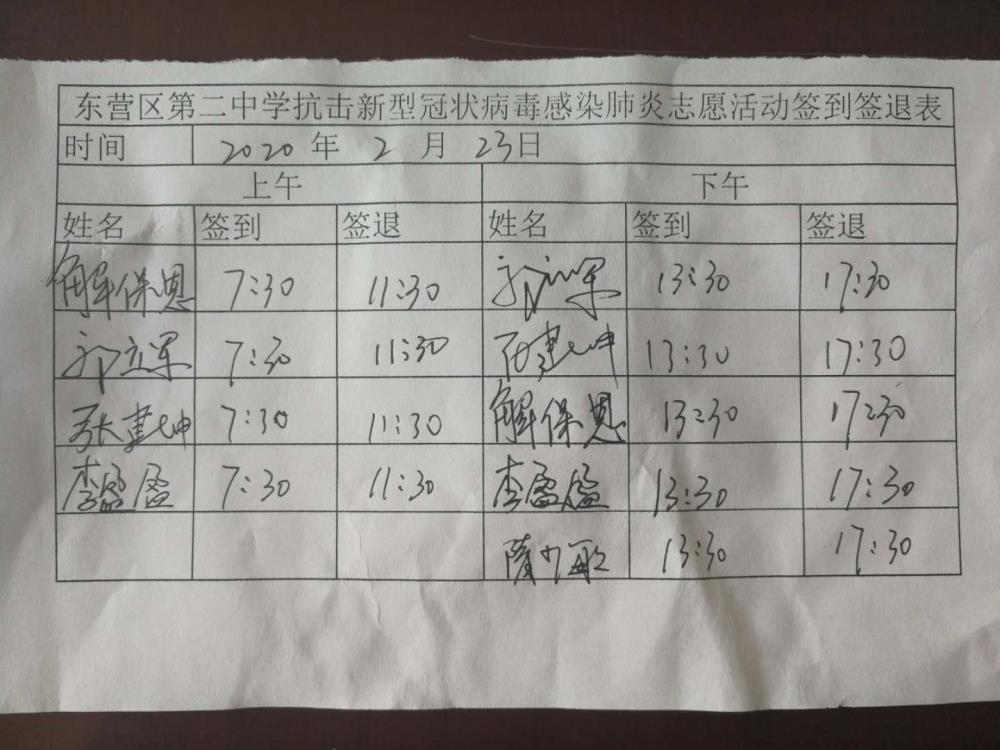 东营区第二中学抗击新型冠状病毒感染肺炎志愿活动签到签退表
时间 2020 年 2 月 23日
上午 下午
姓名 签到 签退 姓名 签到 签退
解保恩 7:30 11:30 郭立军 13:30 17:30
郭立军 7:30 11:30 张建坤 13:30 17:30
张建坤 7:30 11:30 解保恩 13:30 17:30
李盈盈 7:30 11:30 李盈盈 13:30 17:30
13:30 17:30